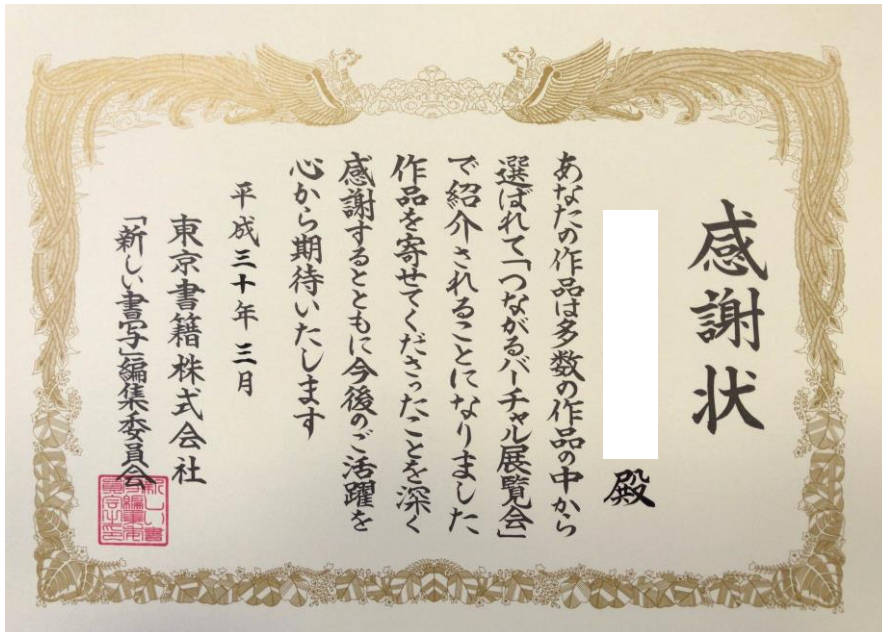 感謝状
殿
あなたの作品は多数の作品の中から
選ばれて「つながるバーチャル展覧会」
で紹介されることになりました、
作品を寄せてくださったことを深く
感謝するとともに今後のご活躍を
心から期待いたします
平成三十年三月
東京書籍株式会社
「新しい書写」編集委員会